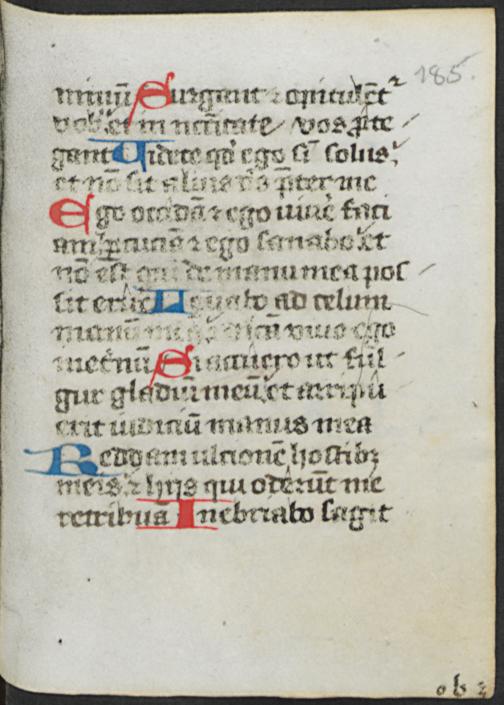 185.
minū Surgant ⁊ opitulēt᷑
vob̄ et in necc̄itate vos ꝓte
gant Videte qđ ego sī solus
et nō sit alius đs p̄ter me
Ego occidā ⁊ ego uiuē faci
am ꝑcuciā ⁊ ego sanabo et
nō est qui de manu mea pos
sit eruē Leuabo ad celum
manū meā ⁊ dicā viuo ego
in et̄nū Si acuero ut ful
gur gladiū meū et arripu
erit iudiciū manus mea
Reddam ulcionē hostibꝫ
meis ⁊ hijs qui oderūt me
retribuā Inebriabo sagit